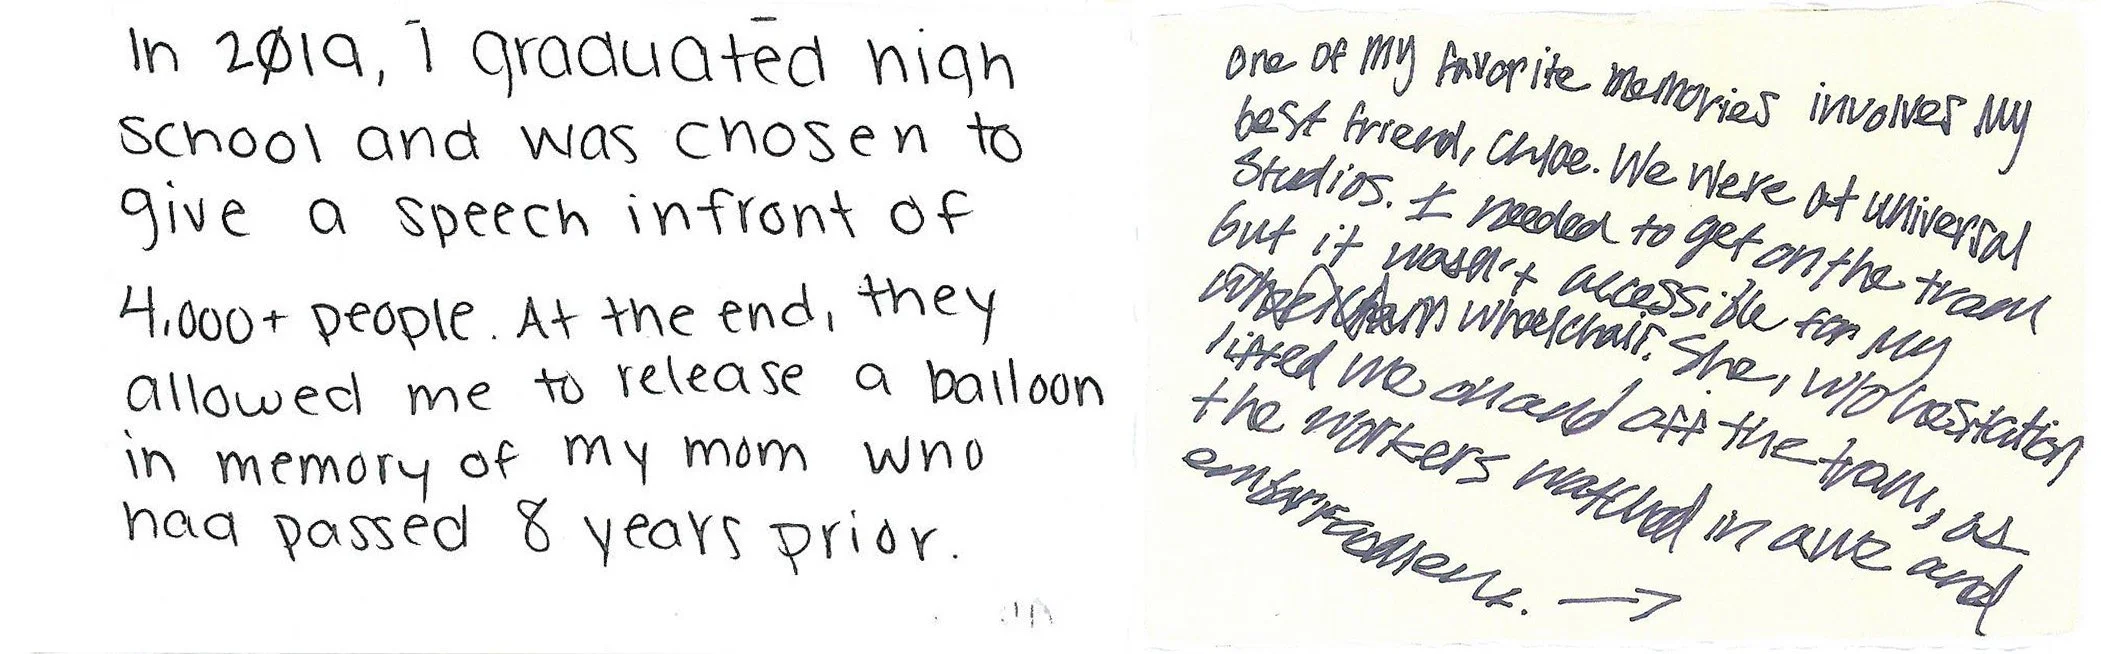 In 2019, I graduated high
school and was chosen to
give a speech infront of
4,000+ people. At the end, they
allowed me to release a balloon
in memory of my mom who
had passed 8 years prior.
One of my favorite memories involves my
best friend, Chloe. We were at universal
Studios. I needed to get on the tram
but it wasn't accessible for my
wheelchair. She, w/o hesitation
lifted me on and off the tram, as
the workers watched in awe and
→